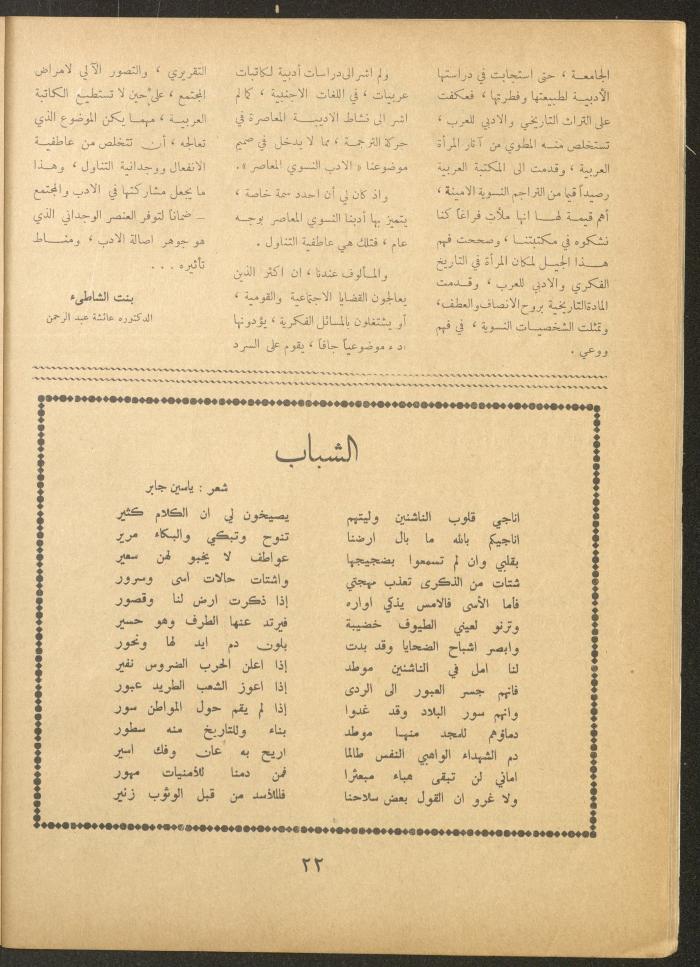 الجامعة ، حتى استجابت في دراستها
الأدبية لطبيعتها وفطرتها ، فعكفت
على التراث التاريخي والادبي للعرب ،
تستخلص منه المطوي من آثار المرأة
العربية ، وقدمت الى المكتبة العربية
رصيداً قيما من التراجم النسوية الامينة ،
أهم قيمة لها انها ملأت فراغاً كنا
نشكوه في مكتبتنا ، وصححت فهم
هذا الجيل لمكان المرأة في التاريخ
الفكري والادبي للعرب ، وقدمت
المادة التاريخية بروح الانصاف والعطف ،
وتمثلت الشخصيات النسوية ، في فهم
ووعي .
ولم اشر الى دراسات أدبية لكاتبات
عربيات ، في اللغات الاجنبية ، كما لم
اشر الى نشاط الاديبة المعاصرة في
حركة الترجمة ، مما لا يدخل في صميم
موضوعنا « الادب النسوي المعاصر » .
واذ كان لي أن احدد سمة خاصة ،
يتميز بها أدبنا النسوي المعاصر بوجه
عام ، فتلك هي عاطفية التناول .
والمألوف عندنا ، ان اكثر الذين
يعالجون القضايا الاجتماعية والقومية ،
أو يشتغلون بالمسائل الفكرية ، يؤدونها
اداء موضوعياً جافاً ، يقوم على السرد
التقريري ، والتصور الآلي لامراض
المجتمع ، على حين لا تستطيع الكاتبة
العربية ، مهما يكن الموضوع الذي
تعالجه ، أن تتخلص من عاطفية
الانفعال ووجدانية التناول ، وهذا
ما يجعل مشاركتها في الادب والمجتمع
ـ ضماناً لتوفر العنصر الوجداني الذي
هو جوهر اصالة الادب ، ومناط
تأثيره . . .
بنت الشاطىء
الدكتوره عائشة عبد الرحمن
الشباب
شعر : ياسين جابر
اناجي قلوب الناشئين وليتهم يصيخون لي ان الكلام كثير
اناجيكم بالله ما بال ارضنا تنوح وتبكي والبكاء مرير
بقلبي وان لم تسمعوا بضجيجها عواطف لا يخبو لهن سعير
شتات من الذكرى تعذب مهجتي واشتات حالات اسى وسرور
فأما الأسى فالامس يذكي اواره إذا ذكرت ارض لنا وقصور
وترنو لعيني الطيوف خضيبة فيرتد عنها الطرف وهو حسير
وابصر اشباح الضحايا وقد بدت بلون دم ايد لها ونحور
لنا امل في الناشئين موطد إذا اعلن الحرب الضروس نفير
فانهم جسر العبور الى الردى إذا اعوز الشعب الطريد عبور
وانهم سور البلاد وقد غدوا إذا لم يقم حول المواطن سور
دماؤهم للمجد منها موطد بناء وللتاريخ منه سطور
دم الشهداء الواهبي النفس طالما اريح به عان وفك اسير
اماني لن تبقى هباء مبعثرا فمن دمنا للأمنيات مهور
ولا غرو ان القول بعض سلاحنا فللأسد من قبل الوثوب زئير
٢٢